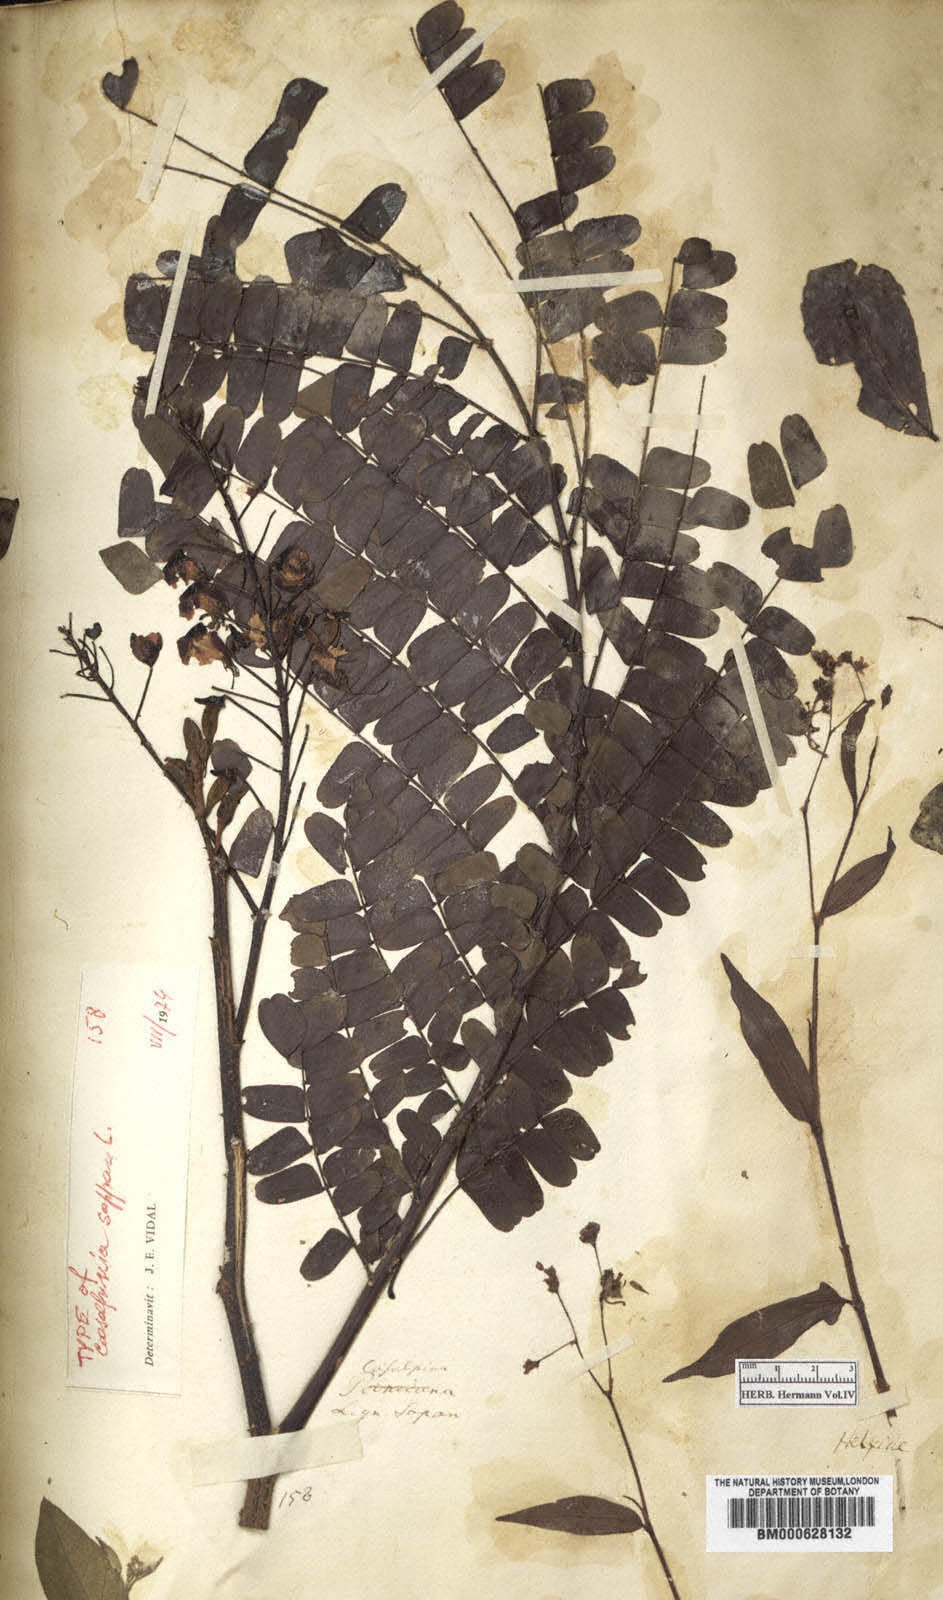 TYPE of
Caesalpinia sappan L.
158
Determinavit: J. E. VIDAL
VIII/1974
Casalpina
Poinciana
Lign Sapan
158
1 2 3
HERB. Hermann Vol.IV
Helxine
THE NATURAL HISTORY MUSEUM,LONDON
DEPARTMENT OF BOTANY
BM000628132